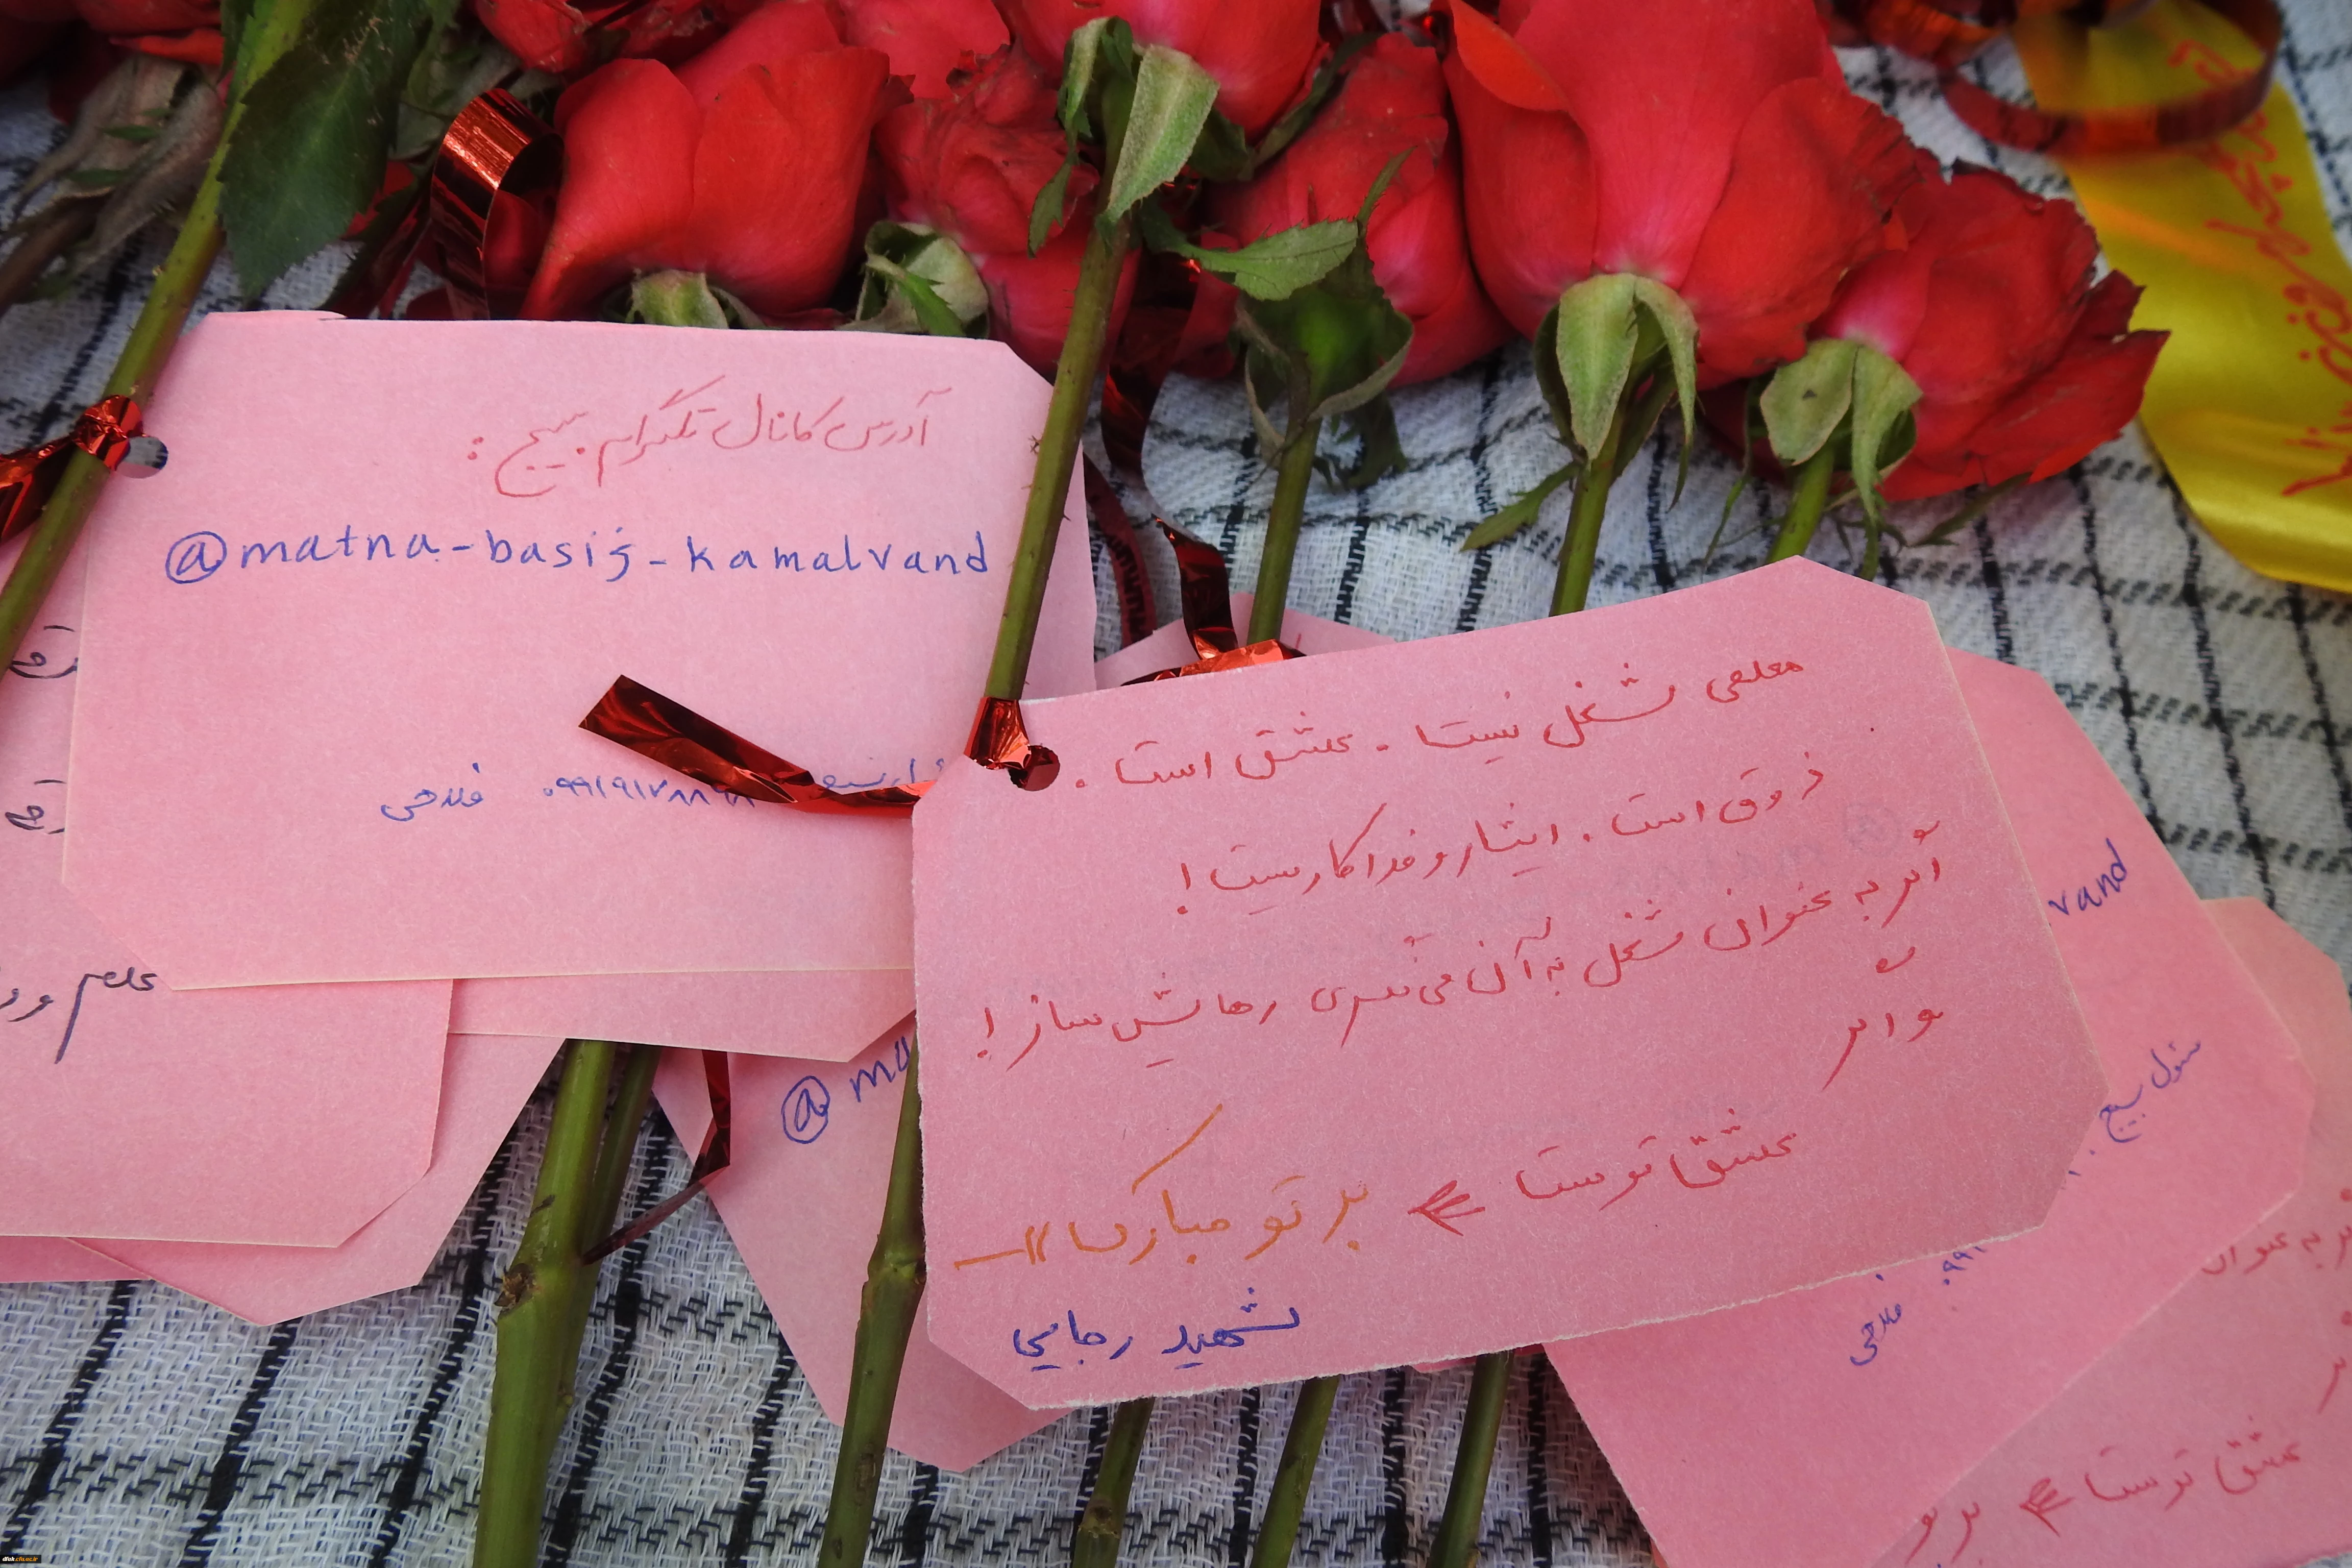 آدرس کانال تلگرام بسیج :
@matna-basij-kamalvand
فلاحی
معلمی شغل نیست . عشق است .
ذوق است . ایثار و فداکاریست !
اگر به عنوان شغل به آن می نگری رهایش ساز !
و اگر
عشق توست بر تو مبارک !!
شهید رجایی
@ ma
vand
مسئول بسیج
فلاحی
به عنوان
عشق توست بر تو
علم و